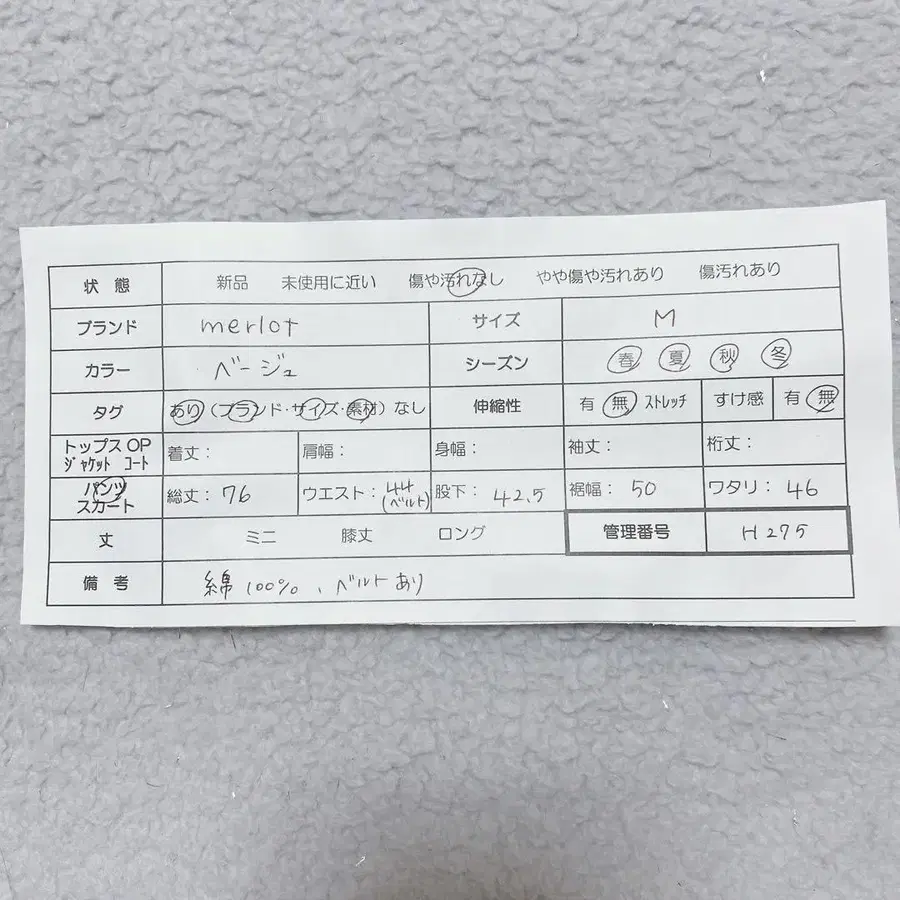 状態 新品 未使用に近い 傷や汚れなし やや傷や汚れあり 傷汚れあり
ブランド merlot サイズ M
カラー ベージュ シーズン 春 夏 秋 冬
タグ あり（ブランド・サイズ・素材）なし 伸縮性 有 無 ｽﾄﾚｯﾁ すけ感 有 無
トップス OP
ｼﾞｬｹｯﾄ ｺｰﾄ 着丈： 肩幅： 身幅： 袖丈： 裄丈：
パンツ
スカート 総丈：76 ウエスト：44 (ベルト) 股下：42.5 裾幅：50 ワタリ：46
丈 ミニ 膝丈 ロング 管理番号 H275
備考 綿100%、ベルトあり